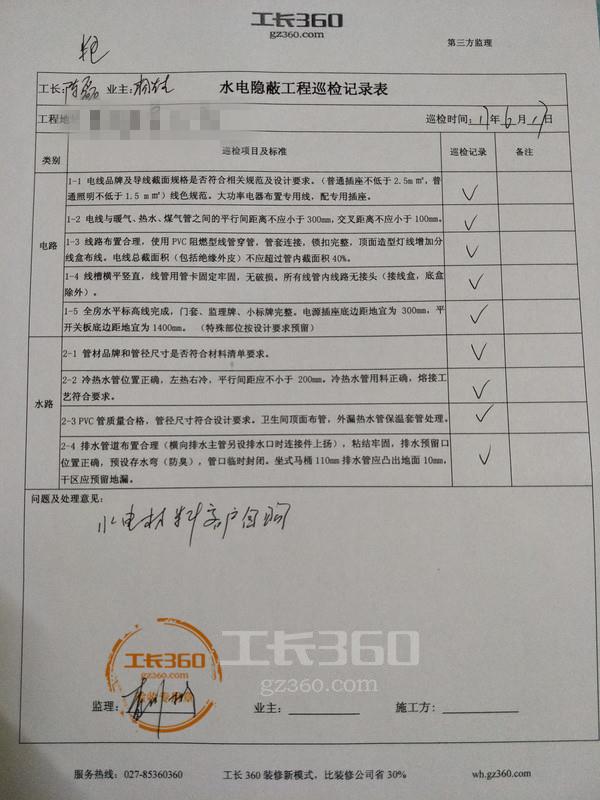 工长360
gz360.com
第三方监理
工长: 陈磊 业主: 水电隐蔽工程巡检记录表
工程地 巡检时间: 17年6月17日
类别 巡检项目及标准 巡检记录 备注
电路
1-1 电线品牌及导线截面规格是否符合相关规范及设计要求。(普通插座不低于2.5m㎡,普
通照明不低于1.5m㎡)线色规范。大功率电器布置专用线,配专用插座。
1-2 电线与暖气、热水、煤气管之间的平行间距离不应小于300mm,交叉距离不应小于100mm。
1-3 线路布置合理,使用PVC阻燃型线管穿管,管套连接,锁扣完整,顶面造型灯线增加分
线盒布线。电线总截面积(包括绝缘外皮)不应超过管内截面积40%。
1-4 线槽横平竖直,线管用管卡固定牢固,无破损。所有线管内线路无接头(接线盒,底盒
除外)。
1-5 全房水平标高线完成,门套、监理牌、小标牌完整。电源插座底边距地宜为300mm,平
开关板底边距地宜为1400mm。(特殊部位按设计要求预留)
水路
2-1 管材品牌和管径尺寸是否符合材料清单要求。
2-2 冷热水管位置正确,左热右冷,平行间距应不小于200mm。冷热水管用料正确,熔接工
艺符合要求。
2-3 PVC管质量合格,管径尺寸符合设计要求。卫生间顶面布管,外漏热水管保温套管处理。
2-4 排水管道布置合理(横向排水主管另设排水口时连接件上扬),粘结牢固,排水预留口
位置正确,预设存水弯(防臭),管口临时封闭。坐式马桶110mm排水管应凸出地面10mm,
干区应预留地漏。
问题及处理意见:
水电材料客户自购
工长360
工长360
gz360.com
监理: 业主: 施工方:
服务热线:027-85360360 工长360装修新模式,比装修公司省30% wh.gz360.com